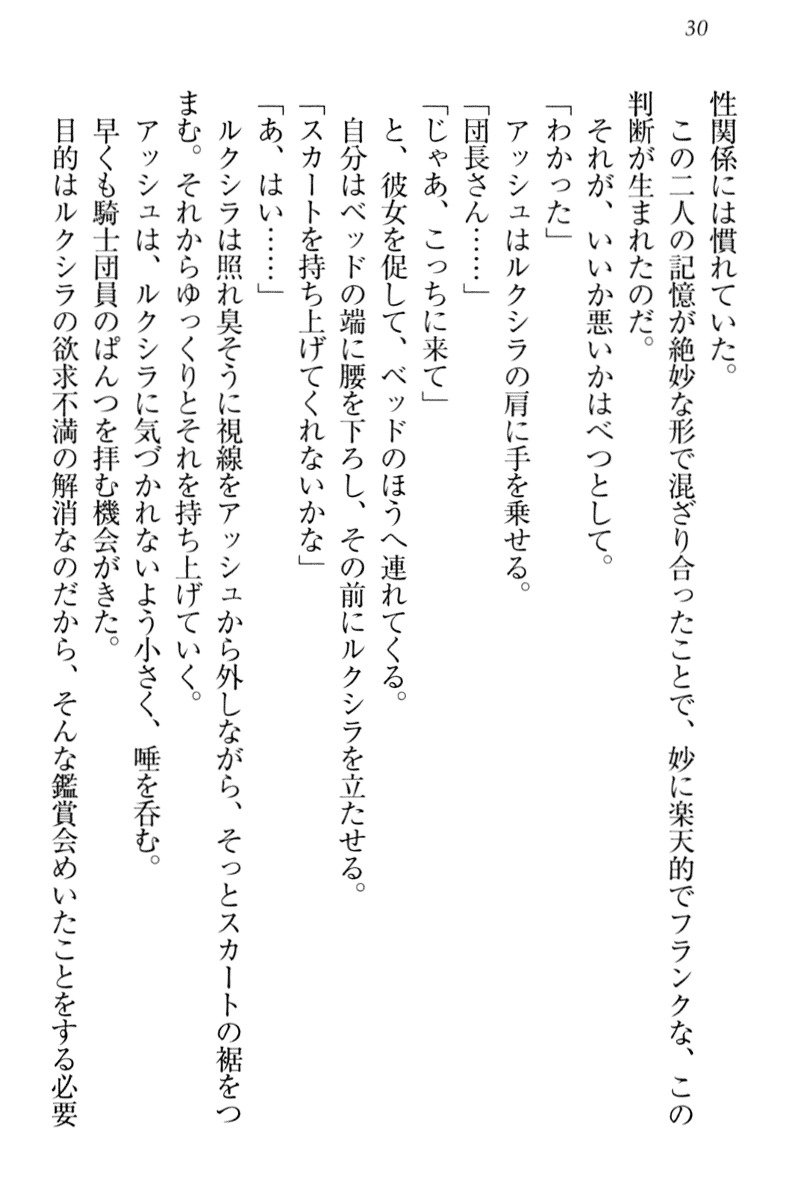 30
性関係には慣れていた。
この二人の記憶が絶妙な形で混ざり合ったことで、妙に楽天的でフランクな、この
判断が生まれたのだ。
それが、いいか悪いかはべつとして。
「わかった」
アッシュはルクシラの肩に手を乗せる。
「団長さん……」
「じゃあ、こっちに来て」
と、彼女を促して、ベッドのほうへ連れてくる。
自分はベッドの端に腰を下ろし、その前にルクシラを立たせる。
「スカートを持ち上げてくれないかな」
「あ、はい……」
ルクシラは照れ臭そうに視線をアッシュから外しながら、そっとスカートの裾をつ
まむ。それからゆっくりとそれを持ち上げていく。
アッシュは、ルクシラに気づかれないよう小さく、唾を呑む。
早くも騎士団員のぱんつを拝む機会がきた。
目的はルクシラの欲求不満の解消なのだから、そんな鑑賞会めいたことをする必要